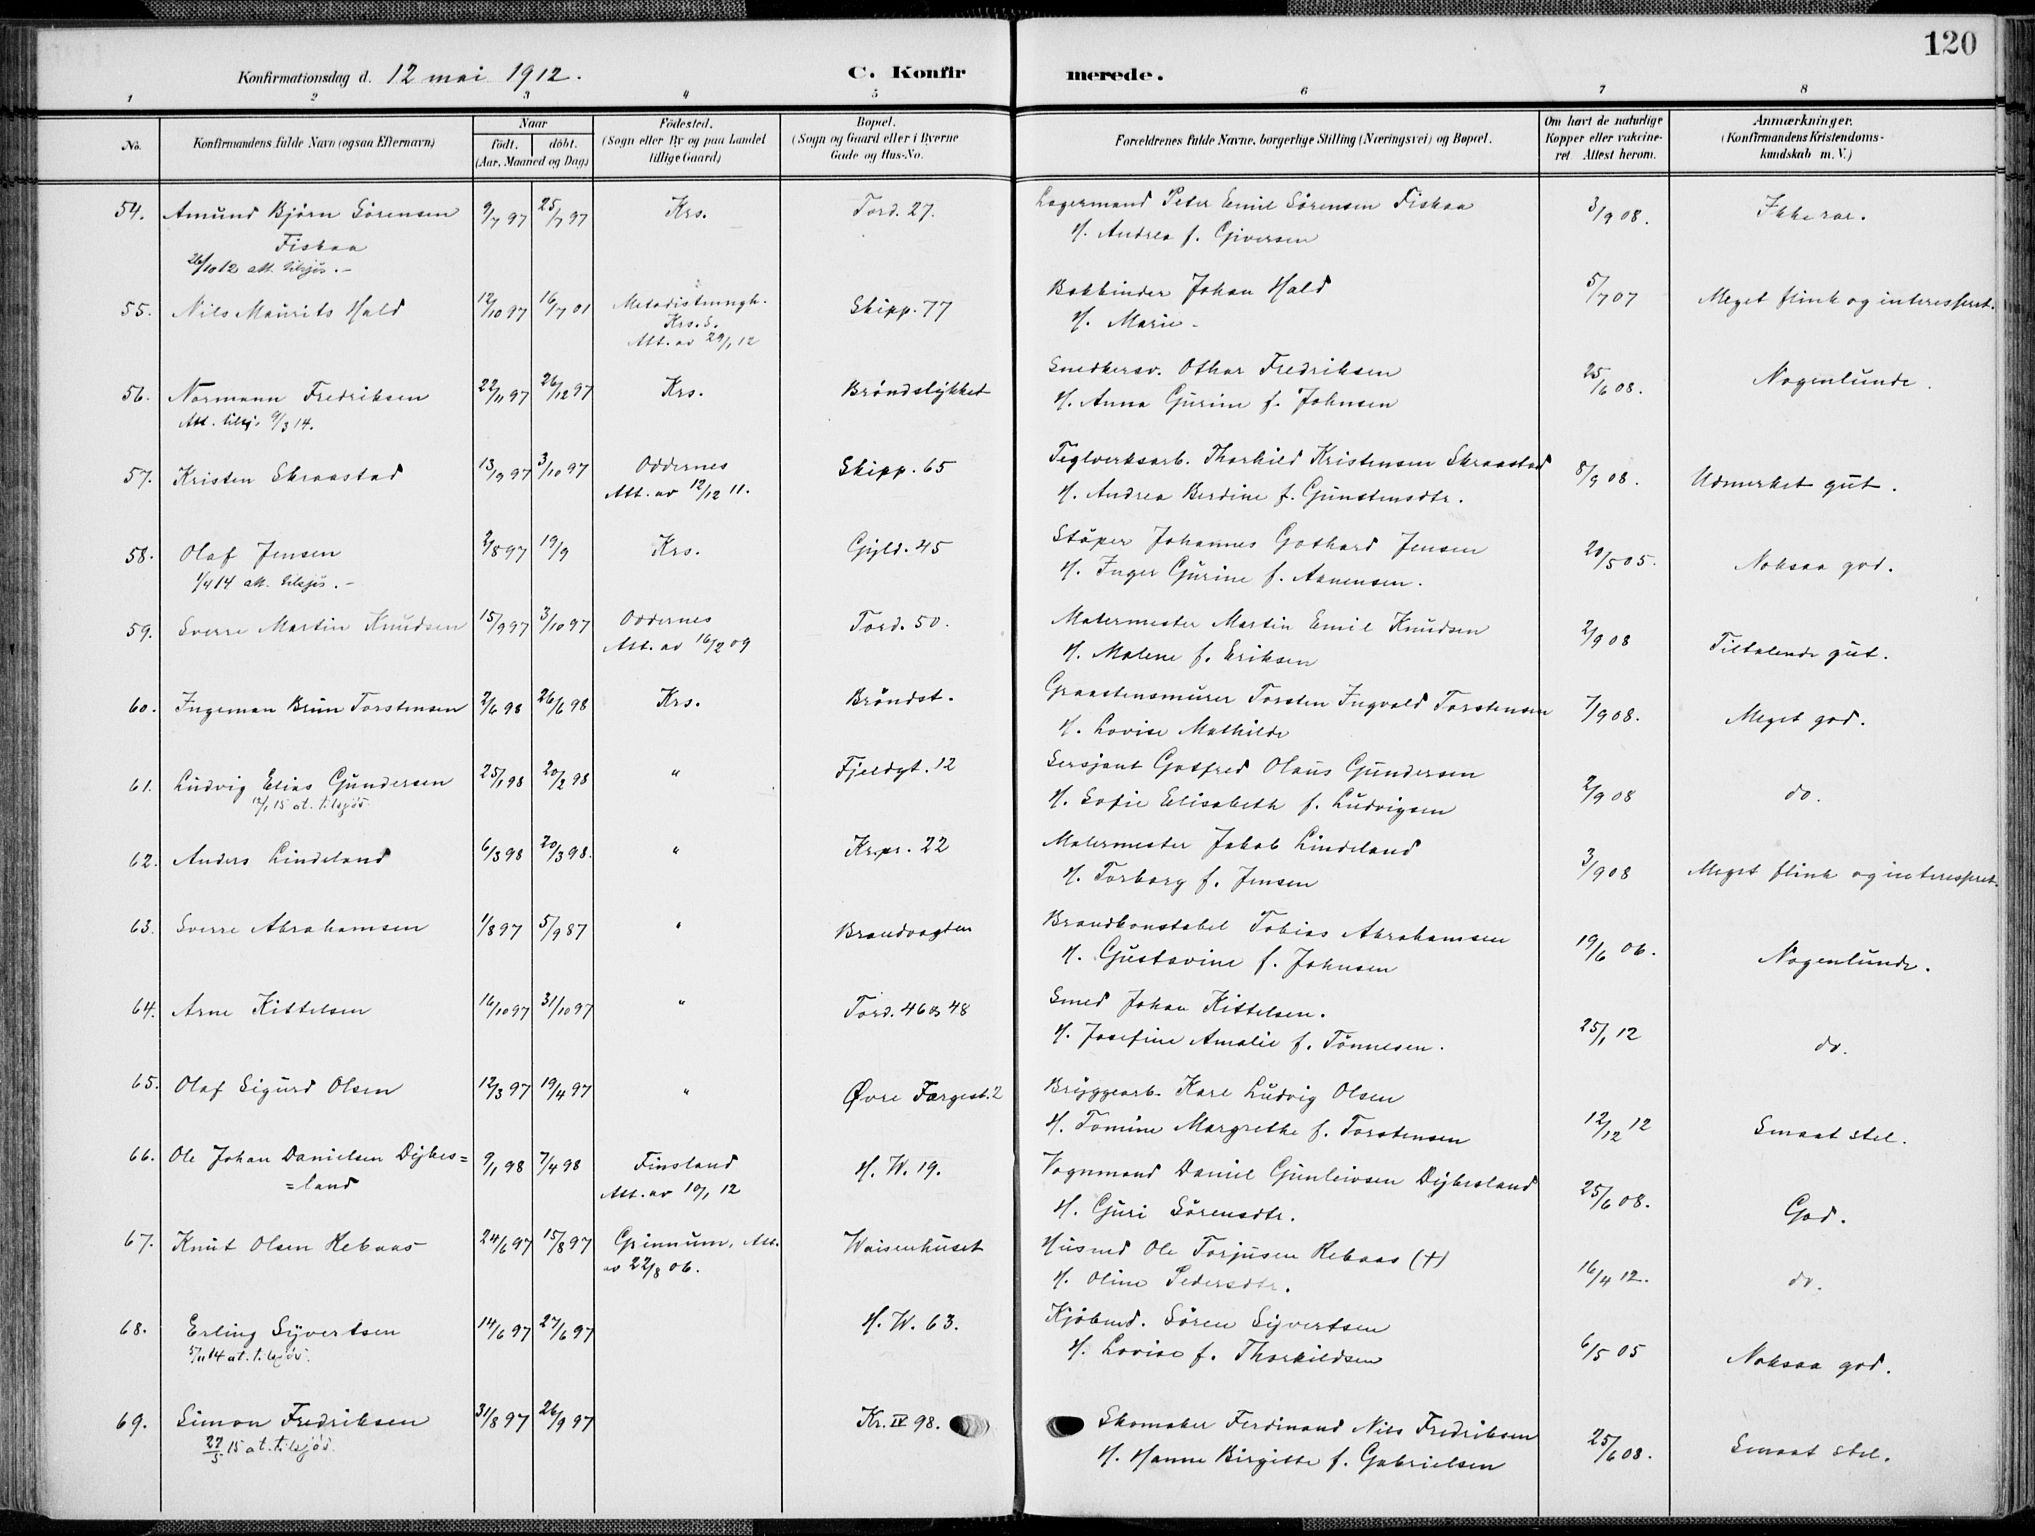 120
Konfirmationsdag d. 12 mai 1912. C. Konfirmerede.
1 2 3 4 5 6 7 8
No. Konfirmandens fulde Navn (ogsaa Efternavn) Naar født. døbt. (Aar, Maaned og Dag) Fødested. (Sogn eller By og paa Landet tillige Gaard) Bopæl. (Sogn og Gaard eller i Byerne Gade og Hus-No. Forældrenes fulde Navne, borgerlige Stilling (Næringsvei) og Bopæl. Om havt de naturlige Kopper eller vakcineret Attest herom. Anmærkninger. (Konfirmandens Kristendomskundskab m. V.)
54. Amund Bjørn Sørensen 9/7 97 25/7 97 Krs. Tord. 27. Lagermand Peter Emil Sørensen Fiskaa 3/9 08. Ikke rar.
Fiskaa H. Andrea f. Giversen
26/10 12 att. tilsjøs. -
55. Nils Maurits Hald 12/10 97 16/7 01 Metodistmngh. Skipp. 77 Bokbinder Johan Hald 5/7 07 Meget flink og interesseret.
Krs. S. H. Marie -
Att. av 29/1 12
56. Normann Fredriksen 22/11 97 26/12 97 Krs. Brøndslykket Snedkersv. Othar Fredriksen 25/6 08. Nogenlunde.
Att. tilsj. 9/3 14. H. Anna Gurine f. Johnsen
57. Kristen Skraastad 13/9 97 3/10 97 Oddernes Skipp. 65 Teglverksarb. Thorkild Kristensen Skraastad 8/9 08. Udmerket gut.
Att. av 12/12 11. H. Andrea Berdine f. Gunstensdtr.
58. Olaf Jensen 2/8 97 19/9 Krs. Gyld. 45 Støper Johannes Gothard Jensen 20/5 05. Noksaa god.
1/4 14 att. tilsjøs. - H. Inger Gurine f. Aanensen.
59. Sverre Martin Knudsen 15/9 97 3/10 97 Oddernes Tord. 50. Malermester Martin Emil Knudsen 2/9 08 Tiltalende gut.
Att. av 16/2 09 H. Malene f. Eriksen
60. Ingeman Brun Torstensen 2/6 98 26/6 98 Krs. Brøndst. Graastensmurer Torsten Ingvald Torstensen 7/9 08. Meget god.
H. Lovise Mathilde
61. Ludvig Elias Gundersen 25/1 98 20/2 98 " Fjeldgt. 12 Sersjant Gotfred Olaus Gundersen 2/9 08 do.
12/1 15 at. tilsjøs H. Sofie Elisabeth f. Ludvigsen
62. Anders Lindeland 6/3 98 20/3 98. " Kr.pr. 22 Malermester Jakob Lindeland 3/9 08 Meget flink og interesseret.
H. Torborg f. Jensen
63. Sverre Abrahamsen 1/8 97 5/9 87 " Brandvagten Brandkonstabel Tobias Abrahamsen 19/6 06. Nogenlunde.
H. Gustavine f. Johnsen
64. Arne Kittelsen 16/10 97 31/10 97 " Tord. 46 og 48 Smed Johan Kittelsen. 25/1 12 do.
H. Josefine Amalie f. Tønnesen.
65. Olaf Sigurd Olsen 12/3 97 19/4 97 " Øvre Færgest. 2 Bryggearb. Kare Ludvig Olsen 12/12 12 Smaat stel.
H. Tomine Margrethe f. Torstensen
66. Ole Johan Danielsen Dybes= 9/1 98 7/4 98 Finsland H. W. 19. Vognmand Daniel Gunleivsen Dybesland 25/6 08. God.
=land Att. av 10/1 12 H. Guri Sørensdtr.
67. Knut Olsen Rebaas 24/6 97 15/8 97 Grinnum, Att. Waisenhuset Husmd Ole Torjusen Rebaas (†) 16/4 12. do.
av 22/8 06. H. Oline Pedersdtr.
68. Erling Syvertsen 14/6 97 27/6 97 H. W. 63. Kjøbmd. Søren Syvertsen 6/5 05 Noksaa god.
5/11 14 at. tilsjøs. H. Lovise f. Thorkildsen
69. Simon Fredriksen 31/8 97 26/9 97 Kr. IV 98. Skomaker Ferdinand Nils Fredriksen 25/6 08. Smaat stel.
27/5 15 at. tilsjøs. H. Hanne Birgitte f. Gabrielsen